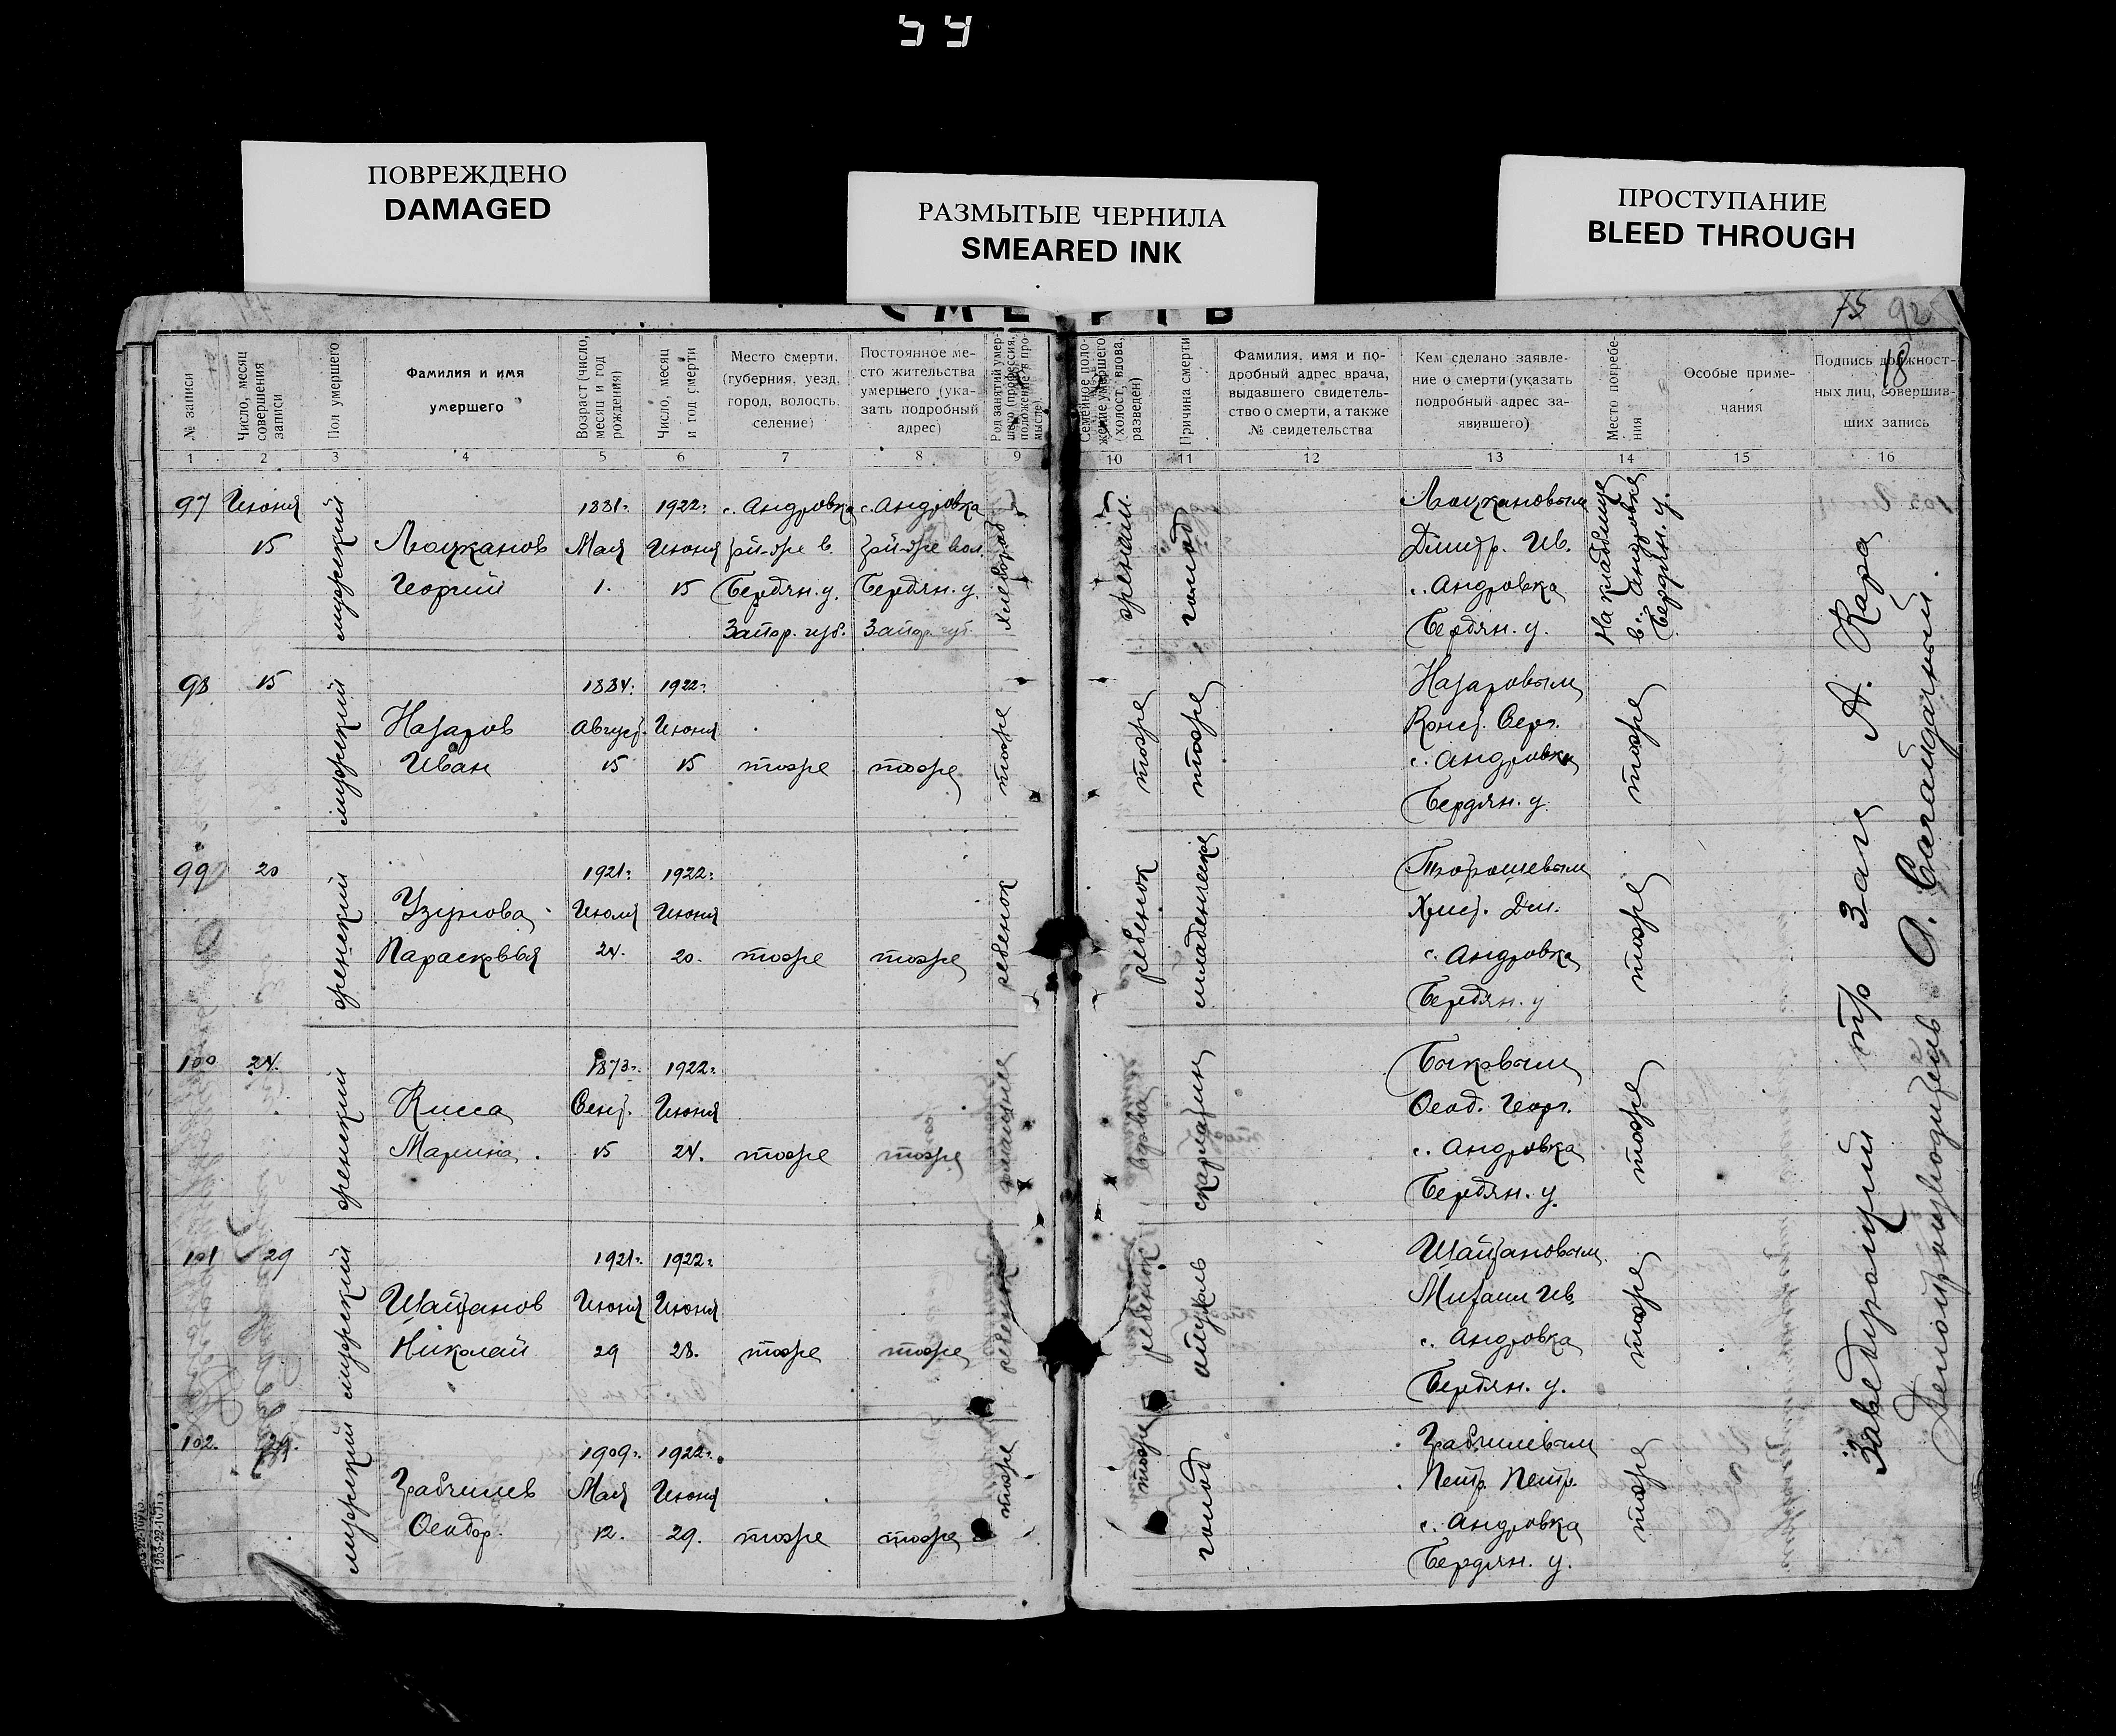 59
ПОВРЕЖДЕНО
DAMAGED
РАЗМЫТЫЕ ЧЕРНИЛА
SMEARED INK
ПРОСТУПАНИЕ
BLEED THROUGH
75 92
18
№ записи
Число, месяц совершения записи
Пол умершего
Фамилия и имя умершего
Возраст (число, месяц и год рождения)
Число, месяц и год смерти
Место смерти, (губерния, уезд, город, волость, селение)
Постоянное место жительства умершего (указать подробный адрес)
Род занятий умершего (профессия, положение в промысле).
Семейное положение умершего (холост, вдова, разведен)
Причина смерти
Фамилия, имя и подробный адрес врача, выдавшего свидетельство о смерти, а также № свидетельства
Кем сделано заявление о смерти (указать подробный адрес заявившего)
Место погребения
Особые примечания
Подпись должностных лиц, совершивших запись
1 2 3 4 5 6 7 8 9 10 11 12 13 14 15 16
97 Июня 1881г. 1922г. с. Андровка с. Андровка
15 мужский Май Июня
Георгий 1. 15 Бердян. у. Бердян. у. хлебороб
Запор. губ. Запор. губ.
женат голод
Дмитр. Ив.
с. Андровка
Бердян. у.
На кладбище в с. Андровке Бердян. у.
98 15 мужский 1884г. 1922г.
Назаров Август. Июня
Иван 15 15 тоже тоже тоже
тоже тоже
Назаровым
Конст. Серг.
с. Андровка
Бердян. у.
тоже
99 20 женский 1921г. 1922г.
Узунова Июля Июня
Парасковья 24. 20. тоже тоже ребенок
ребенок младенческ
Христ. Дм.
с. Андровка
Бердян. у
тоже
100 24. женский 1873г. 1922г.
Кисса Сент. Июня
Марина. 15 24. тоже тоже домашние
вдова скарлатин
Быковым
Феод. Георг.
с. Андровка
Бердян. у.
тоже
101 29 мужский 1921г. 1922г.
Шайтанов Июня Июня
Николай 29 28. тоже тоже ребенок
ребенок
Шайтановым
Ив.
с. Андровка
Бердян. у.
тоже
102. 29. мужский 1909г. 1922г.
Май Июня
Феодор. 12. 29. тоже тоже тоже
тоже голод
Петр Петр.
с. Андровка
Бердян. у.
тоже
Заведующий А. Кара
Делопроизводитель О. Сагайдачный.